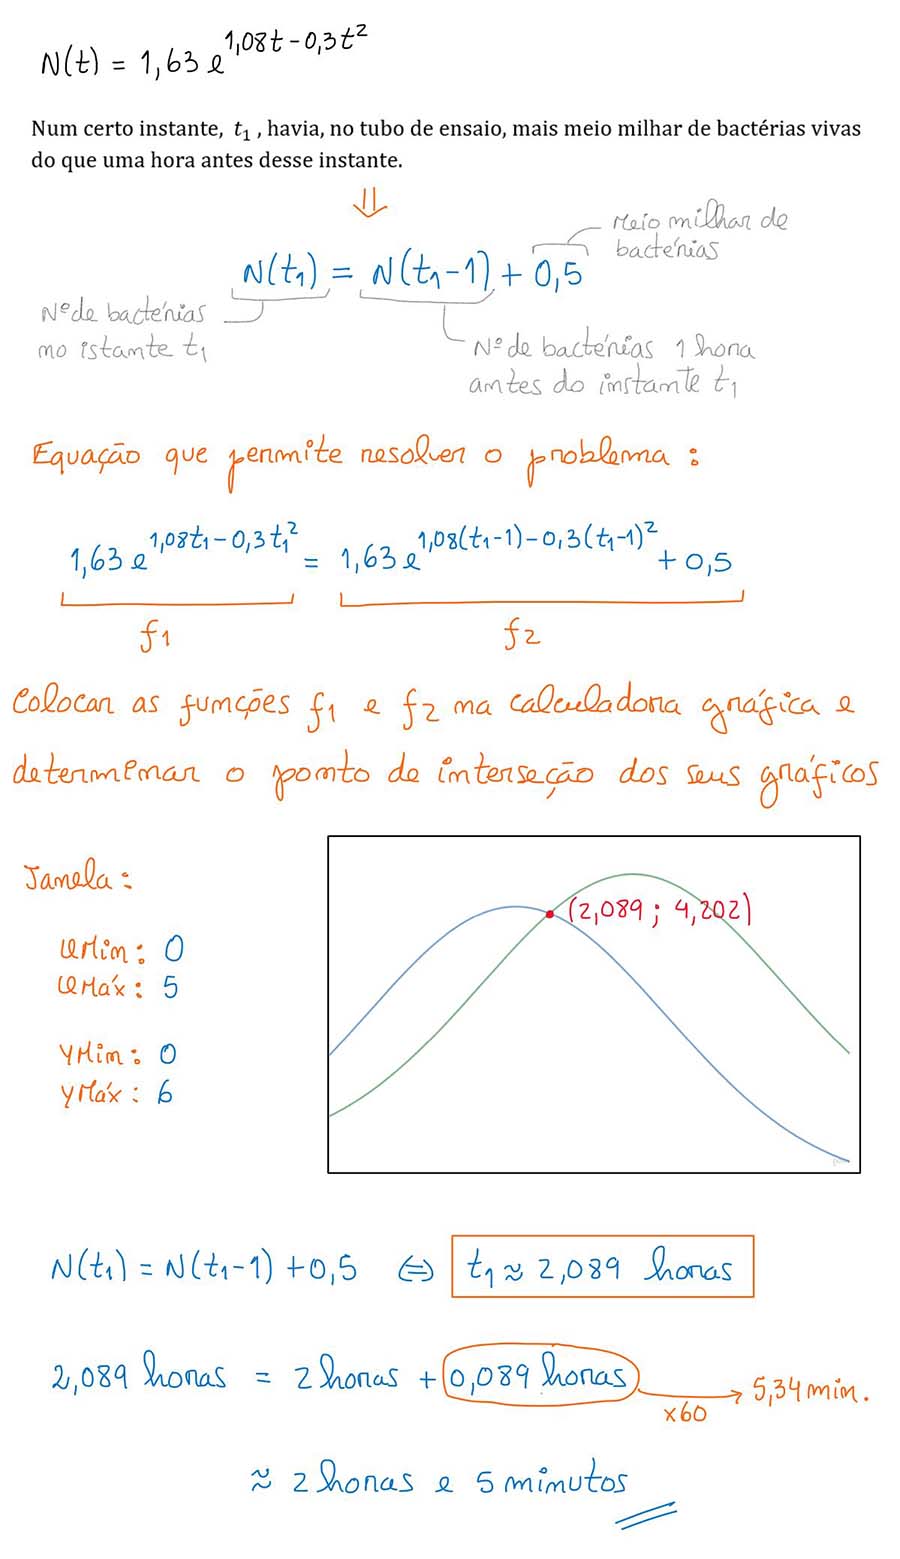 N(t) = 1,63 e^{1,08t - 0,3t^2}
Num certo instante, t_1 , havia, no tubo de ensaio, mais meio milhar de bactérias vivas
do que uma hora antes desse instante.
⇓
Meio milhar de
bactérias
N(t_1) = N(t_1-1) + 0,5
Nº de bactérias
no istante t_1
Nº de bactérias 1 hora
antes do instante t_1
Equação que permite resolver o problema :
1,63 e^{1,08t_1 - 0,3t_1^2} = 1,63 e^{1,08(t_1-1) - 0,3(t_1-1)^2} + 0,5
f_1 f_2
Colocar as funções f_1 e f_2 na calculadora gráfica e
determinar o ponto de interseção dos seus gráficos
Janela :
(2,089 ; 4,202)
xMin : 0
xMáx : 5
yMin : 0
yMáx : 6
N(t_1) = N(t_1-1) + 0,5 ⇔ t_1 ≈ 2,089 horas
2,089 horas = 2 horas + 0,089 horas → 5,34 min.
x60
≈ 2 horas e 5 minutos